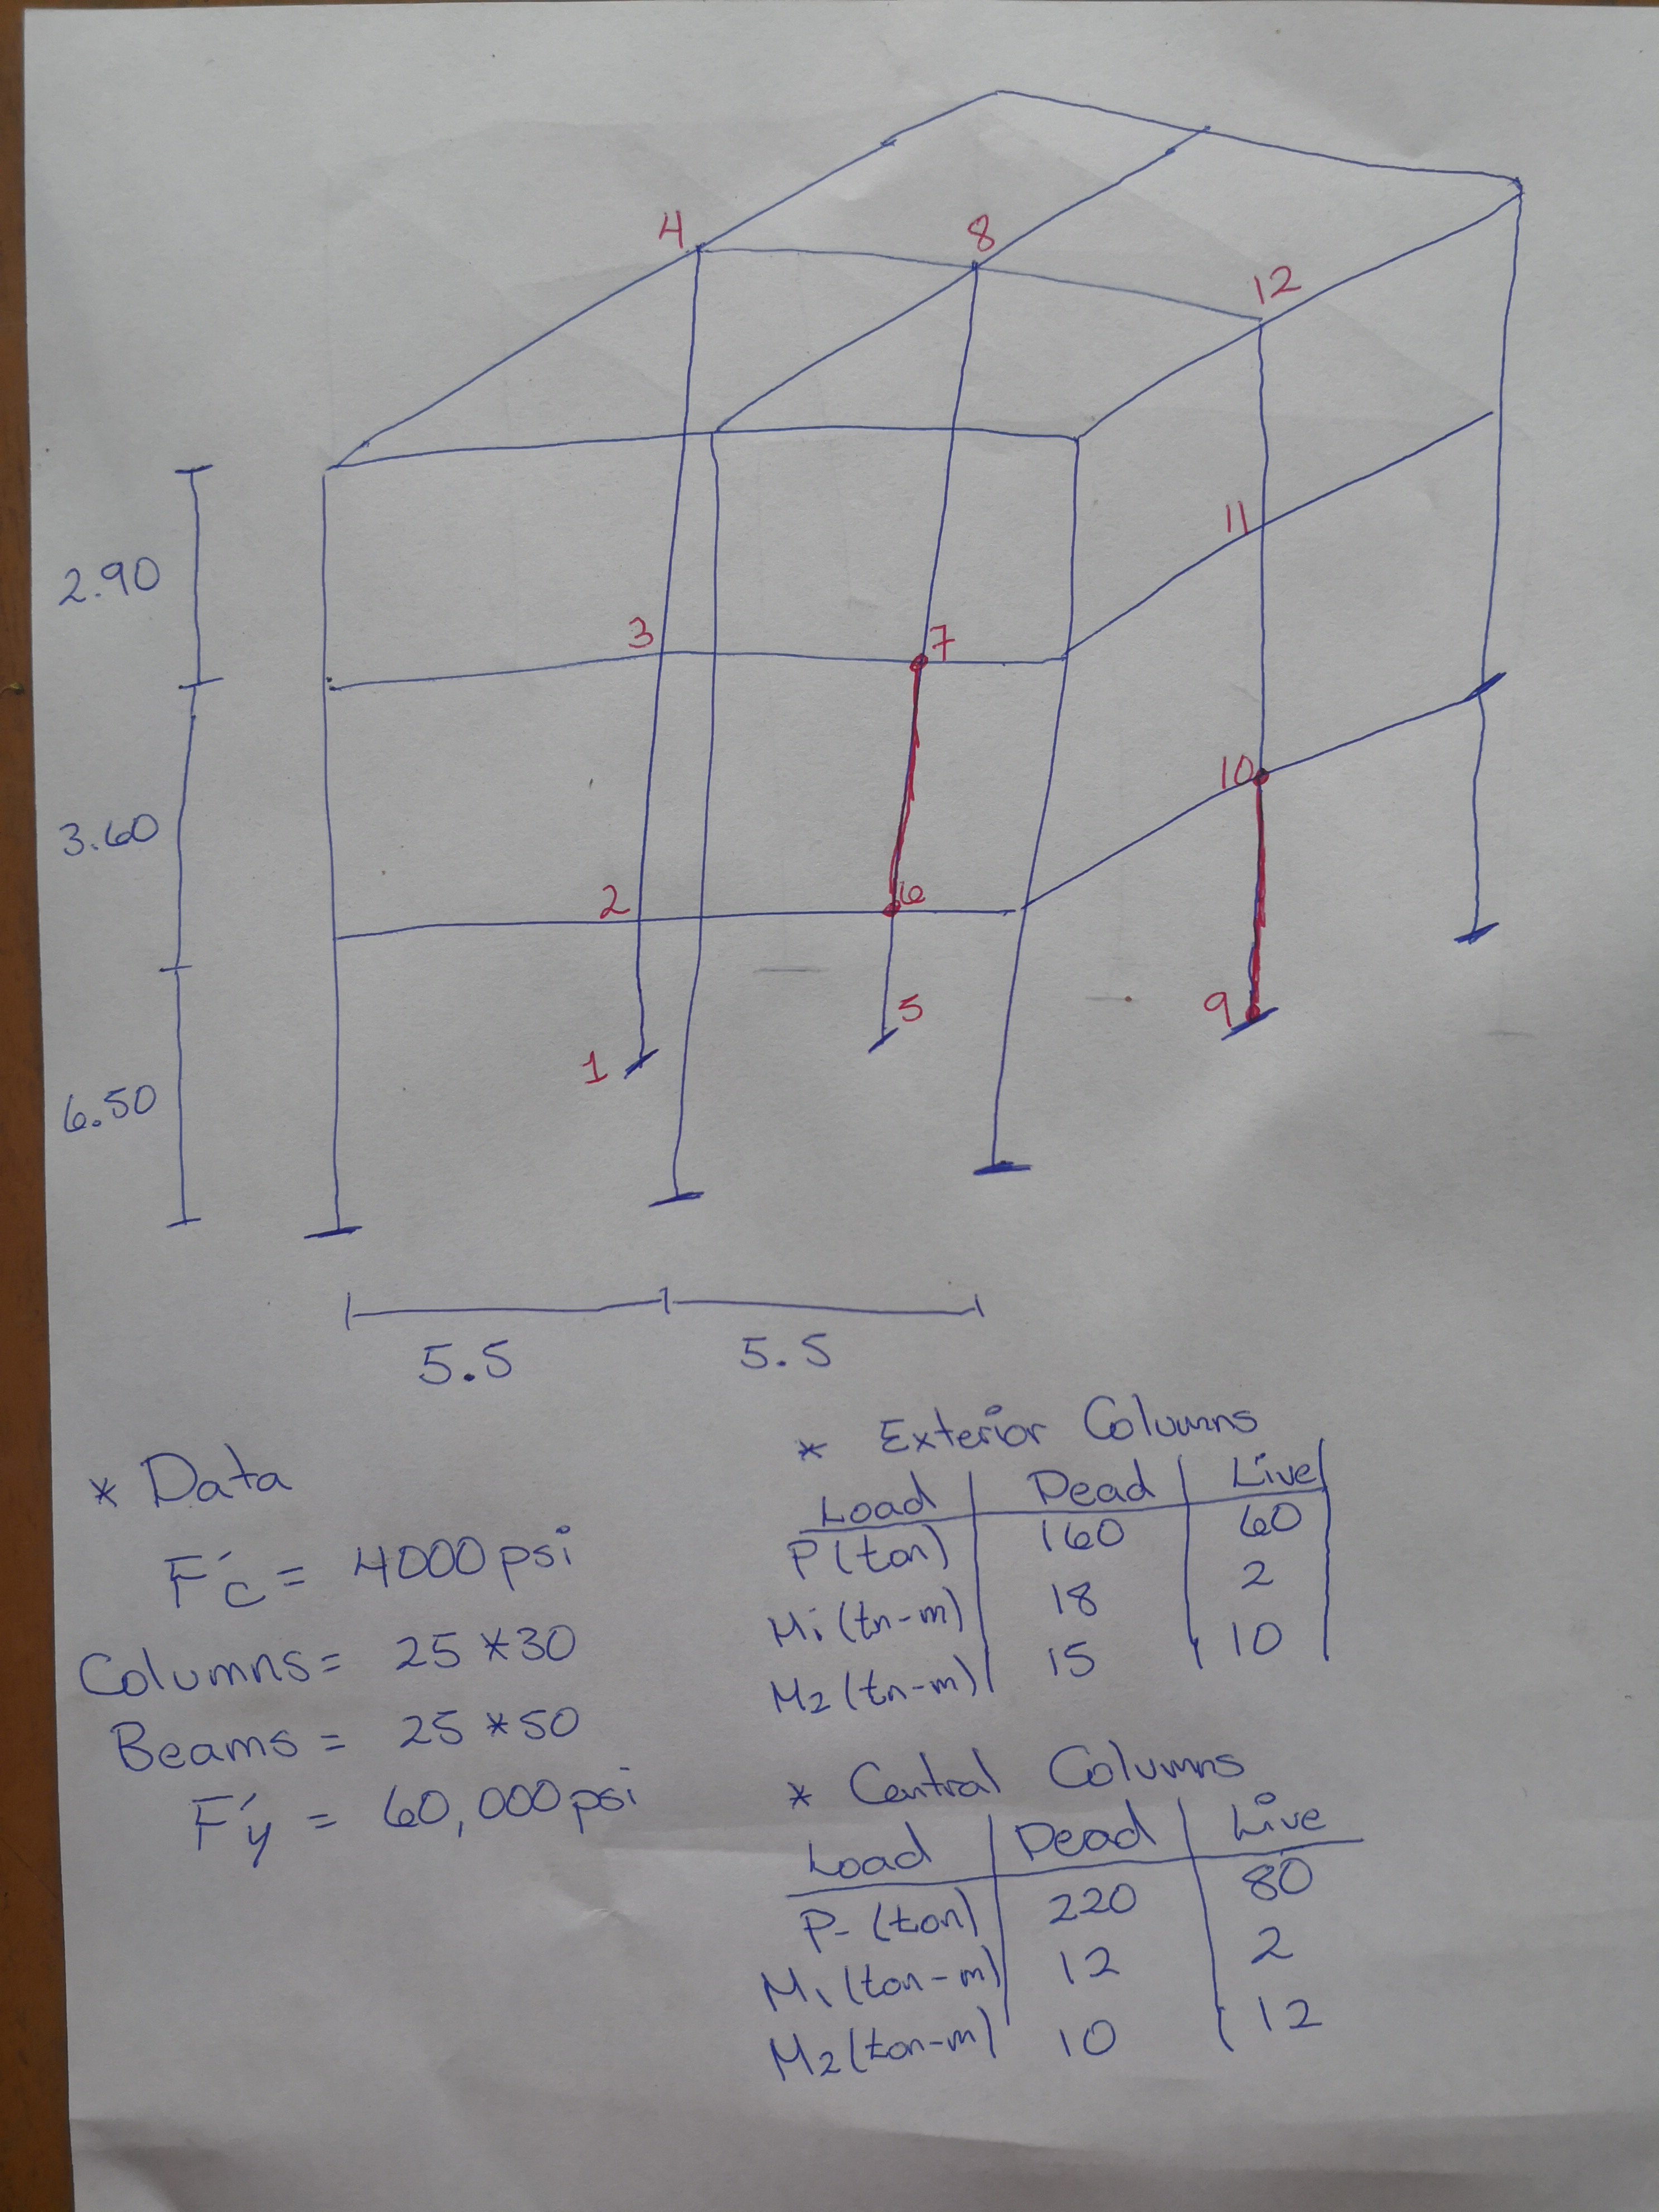 4
8
12
2.90
11
3
7
3.60
10
2
6
5
9
1
6.50
5.5 5.5
* Data
F'c = 4000 psi
Columns = 25 * 30
Beams = 25 * 50
F'y = 60,000 psi
* Exterior Columns
Load Dead Live
P (ton) 160 60
M1 (tn-m) 18 2
M2 (tn-m) 15 10
* Central Columns
Load Dead Live
P- (ton) 220 80
M1 (ton-m) 12 2
M2 (ton-m) 10 12